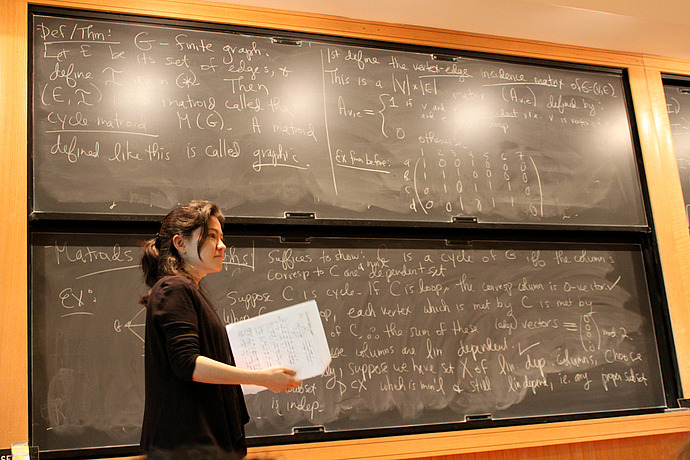 Def/Thm: G - finite graph.
Let E be its set of edges, &
define I as (*). Then
(E, I) matroid called the
cycle matroid M(G). A matroid
defined like this is called graphic.
1st define the vertex-edge incidence matrix of G=(V,E).
This is a |V|×|E| matrix (Av,e) defined by:
Av,e = { 1 if v and
0 otherwise
Ex from before:
1 2 3 4 5 6 7
a
b
c
d
Matroids
Suffices to show: is a cycle of G iff the columns
corresp to C are a dependent set
Ex:
Suppose C is cycle. If C is loop, the corresp column is 0-vector ✓
When C loop, each vertex which is met by C is met by
of C ∴ the sum of these (edge) vectors ≡ mod 2
columns are lin dependent. ✓
, suppose we have set X of lin dep columns, Choose
subset D ⊂ X which is min'l & still lin depend, i.e. any proper subset
is indep.